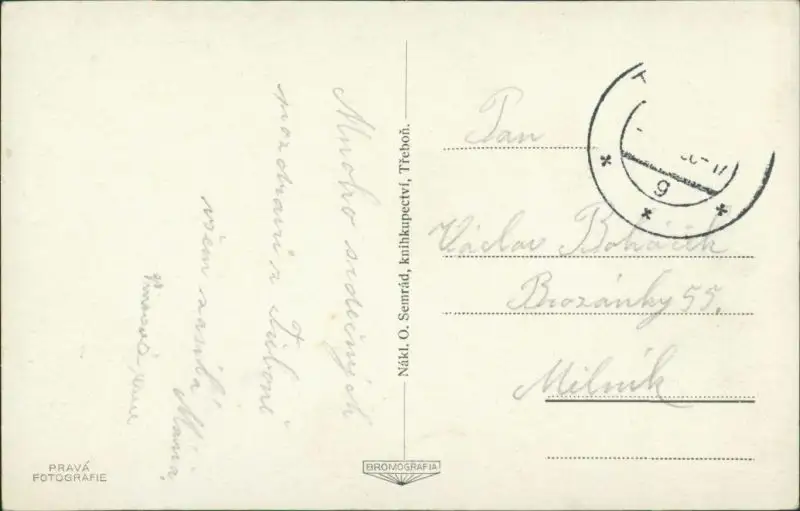 Mnoho srdečných
pozdravů z Třeboně
všem zasílá Máňa,
Nákl. O. Semrád, knihkupectví, Třeboň.
Pan
Václav Boháček
Brozánky 55.
Mělník
9
PRAVÁ
FOTOGRAFIE
BROMOGRAFIA